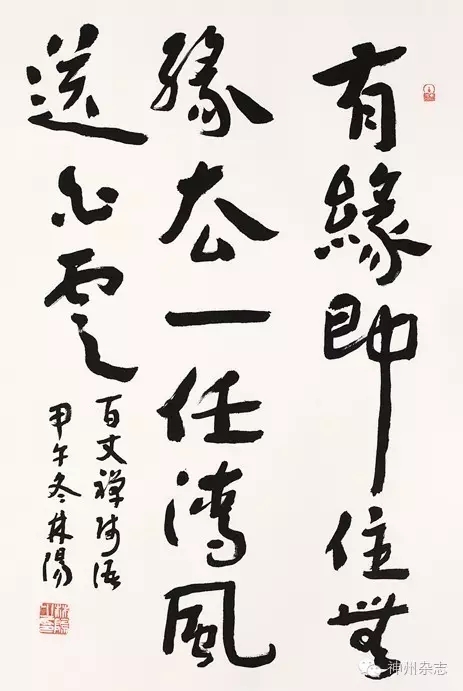 有緣即住無
緣去一任清風
送白雲
百丈禪師語
甲午冬林陽
神州杂志